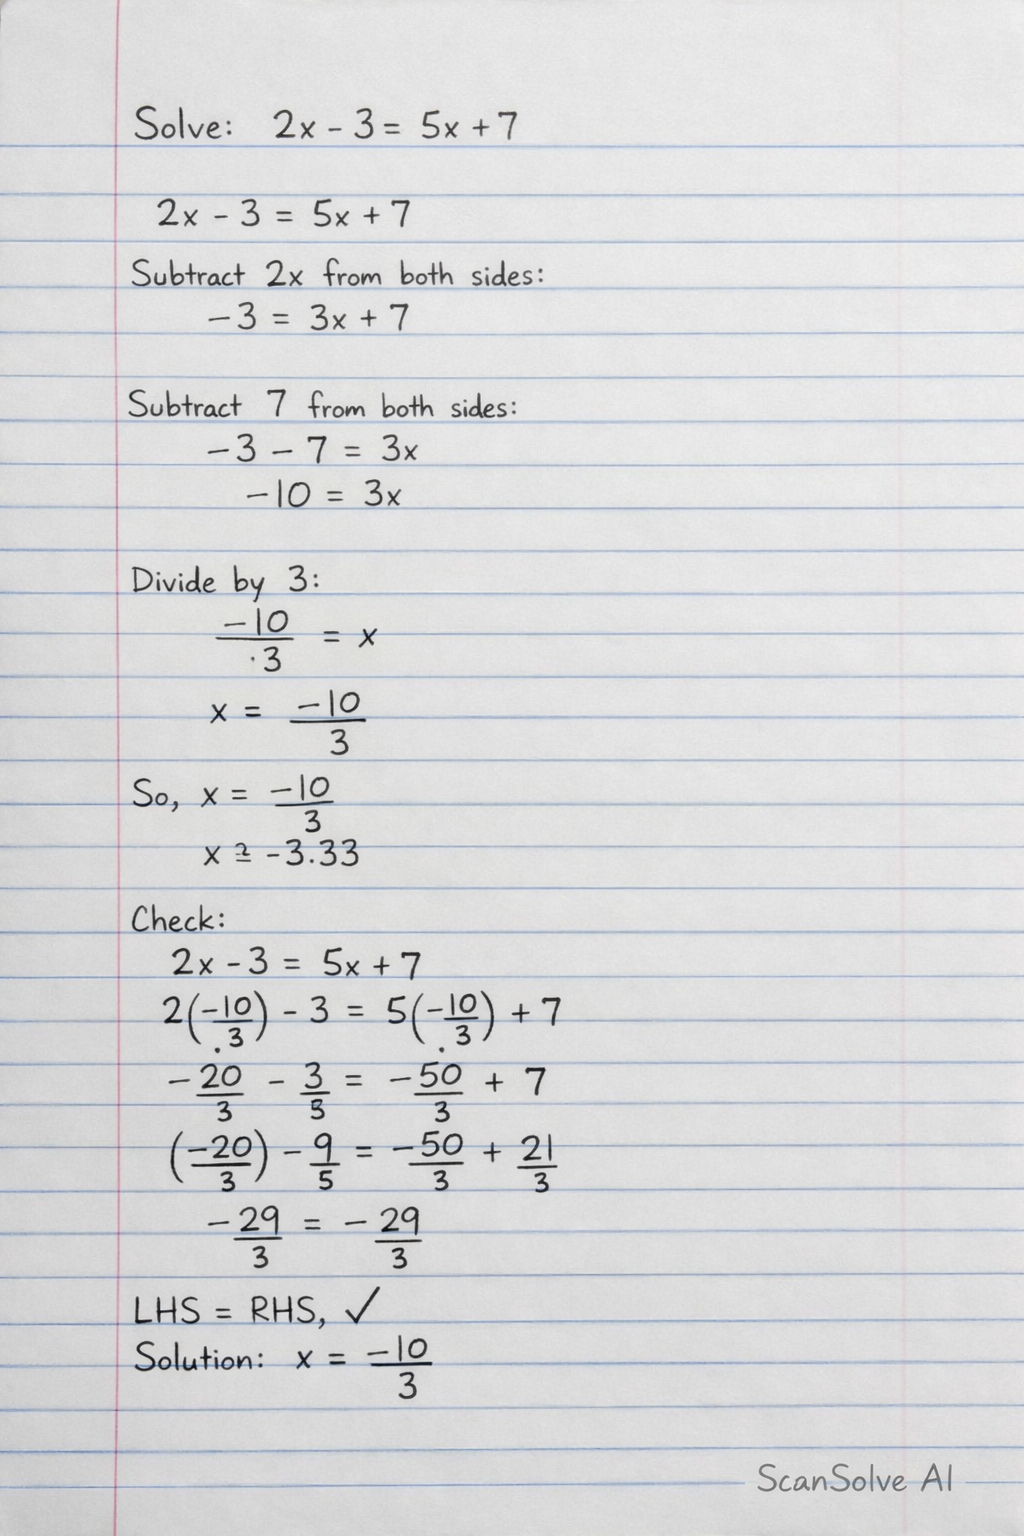 Solve: 2x - 3 = 5x + 7
2x - 3 = 5x + 7
Subtract 2x from both sides:
-3 = 3x + 7
Subtract 7 from both sides:
-3 - 7 = 3x
-10 = 3x
Divide by 3:
-10/3 = x
x = -10/3
So, x = -10/3
x ≅ -3.33
Check:
2x - 3 = 5x + 7
2(-10/3) - 3 = 5(-10/3) + 7
-20/3 - 3/3 = -50/3 + 7
(-20/3) - 9/5 = -50/3 + 21/3
-29/3 = -29/3
LHS = RHS, ✓
Solution: x = -10/3
ScanSolve AI